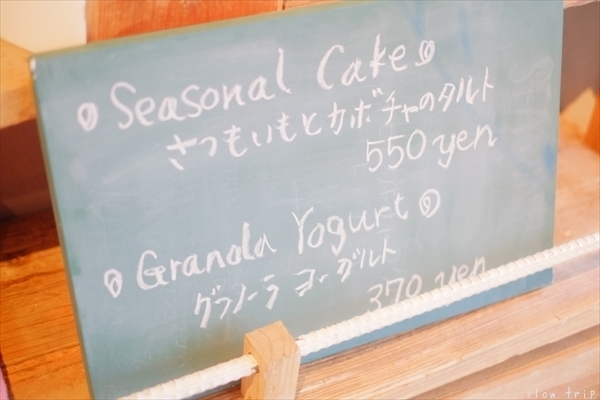 Seasonal Cake
さつもいもとカボチャのタルト
550 yen
Granola Yogurt
グラノーラ ヨーグルト
370 yen
slow trip